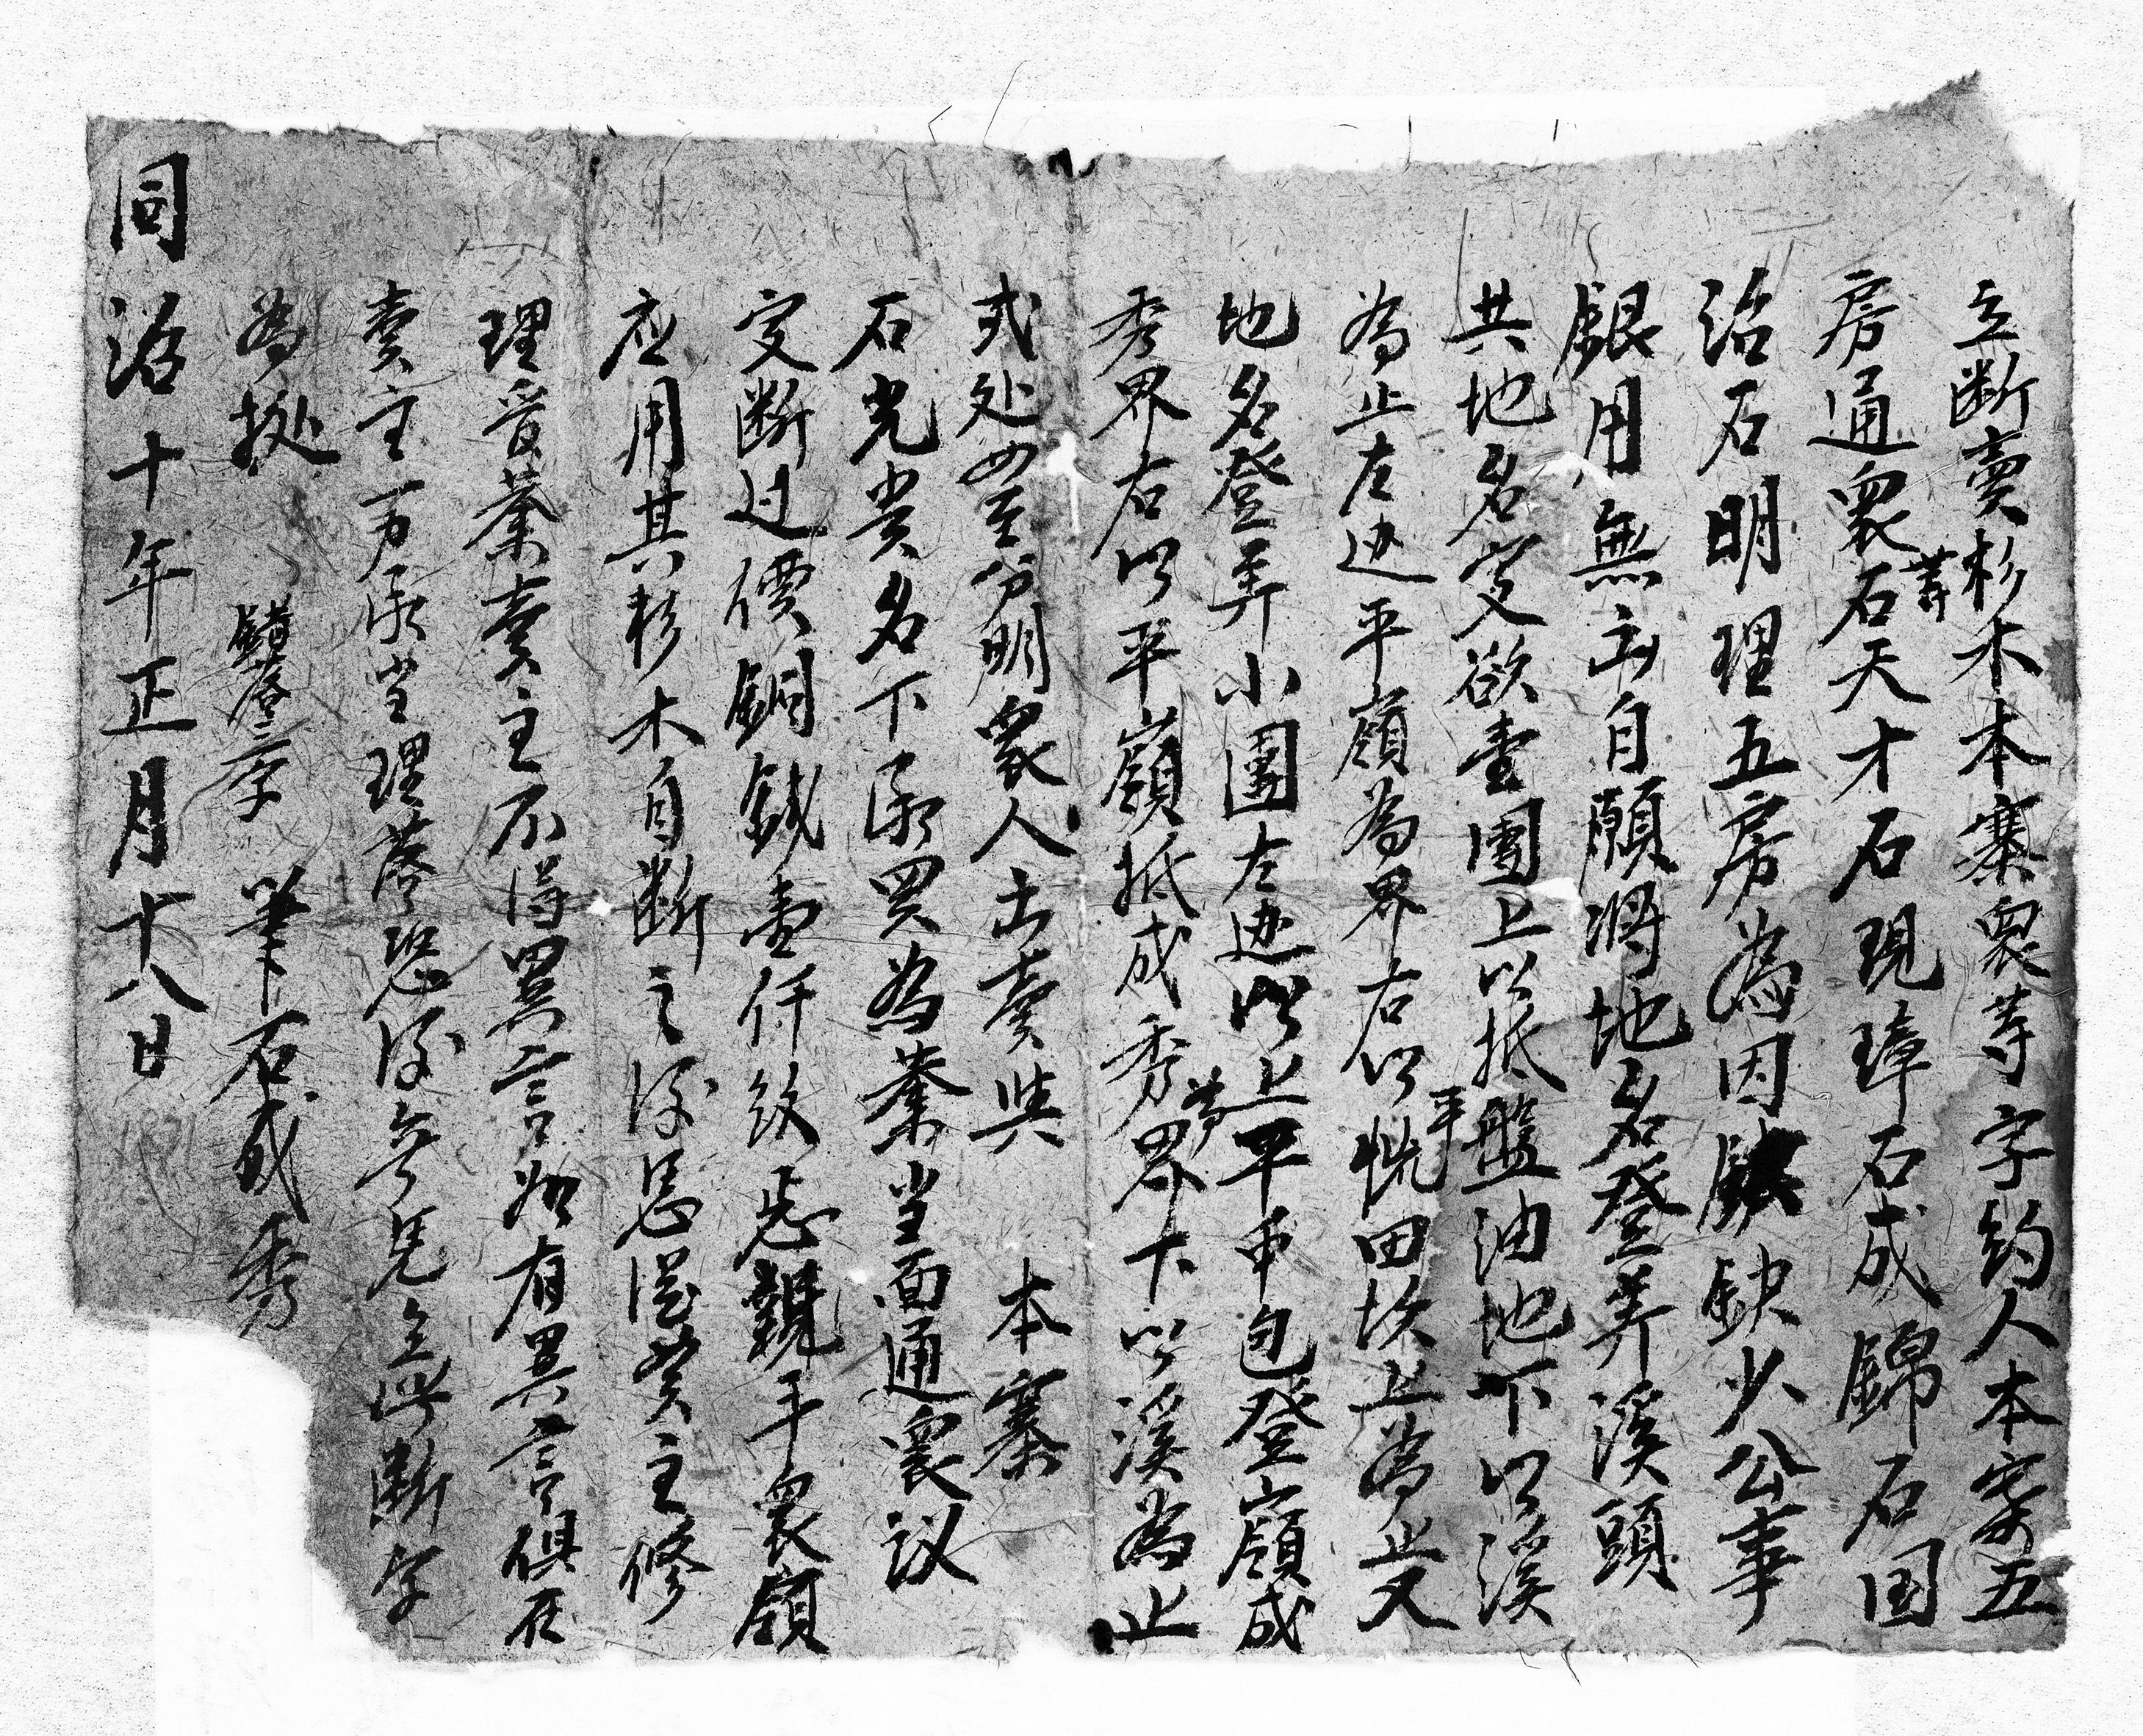 立断賣杉木本寨衆等字約人本寨五
房通衆等石天才石現璋石成錦石国
治石明理五房為因缺缺少公事
銀用無出自願將地名登羿溪頭
共地名交欲壹團上以抵盤平油地下以溪
為止左边平嶺為界右以恍田坎上為止又
地名登羿小團左边以上平中包登嶺成
秀界右以平嶺抵成秀界下以溪為止
弍处四至分明衆人出賣與 本寨
石光贵名下承買為業当面通衆议
定断过價銅錢壹仟文足親手衆領
应用其杉木自断之後恁從買主修
理管業賣主不得異言如有異言俱在
賣主一力承当理落恐後無凭立此断字
為據 錯落二字 筆石成秀
同治十年正月十八日
1871